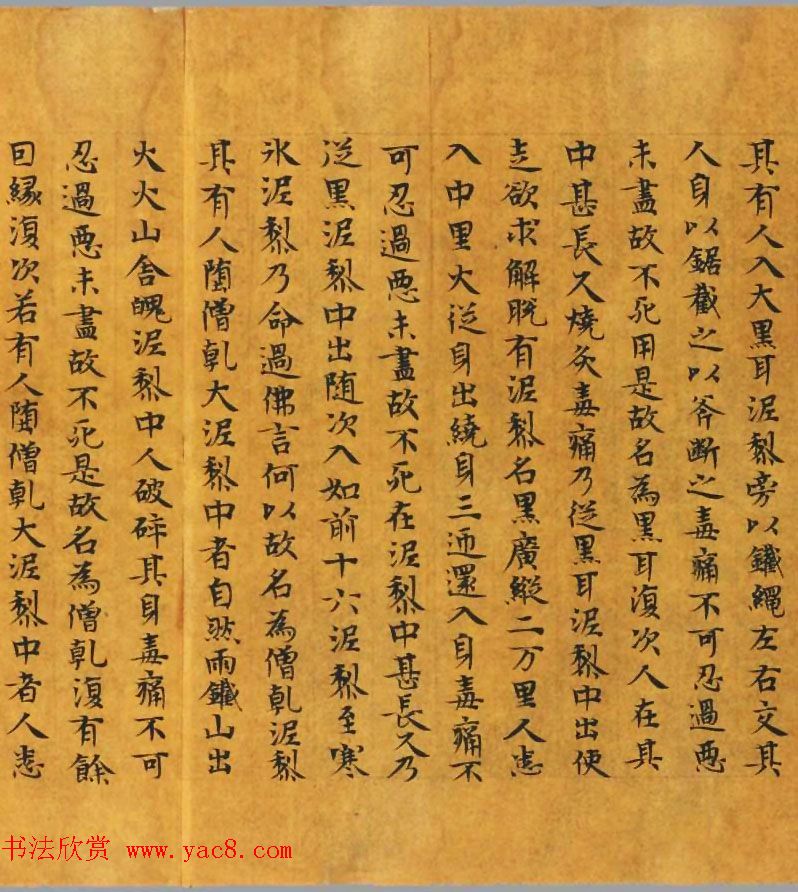 其有人入大黑耳泥犁旁以鐵繩左右交其
人身以鋸截之以斧斷之毒痛不可忍過惡
未盡故不死用是故名為黑耳復次人在其
中甚長久燒炙毒痛乃從黑耳泥犁中出便
走欲求解脫有泥犁名黑廣縱二万里人悉
入中里火從身出繞身三迊還入身毒痛不
可忍過惡未盡故不死在泥犁中甚長久乃
從黑泥犁中出随次入如前十六泥犁至寒
氷泥犁乃命過佛言何以故名為僧乹泥犁
其有人墮僧乹大泥犁中者自然兩鐵山出
火火山舍魄泥犁中人破碎其身毒痛不可
忍過惡未盡故不死是故名為僧乹復有餘
因緣復次若有人墮僧乹大泥犁中者人悉
书法欣赏 www.yac8.com